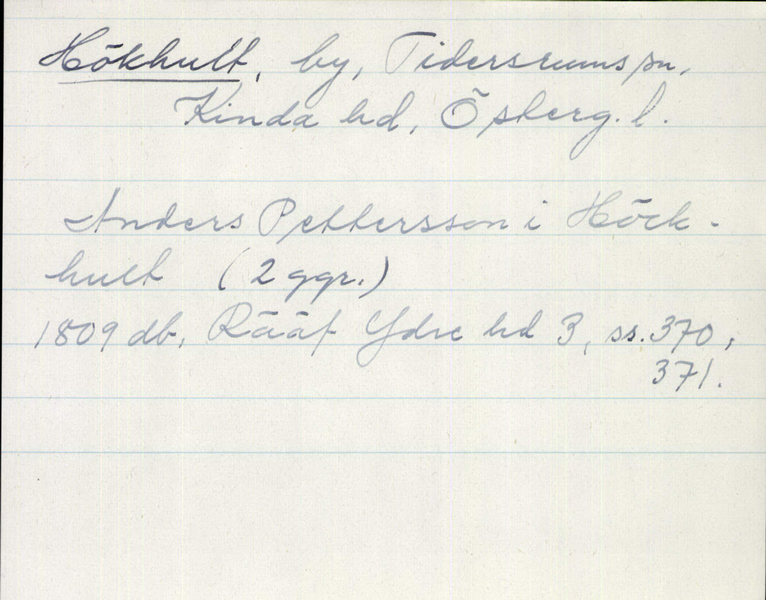 Hökhult, by, Tidersrums sn,
Kinda hd, Österg. l.
Anders Pettersson i Höck-
hult (2 ggr.)
1809 db, Rääf Ydre hd 3, ss. 370,
371.